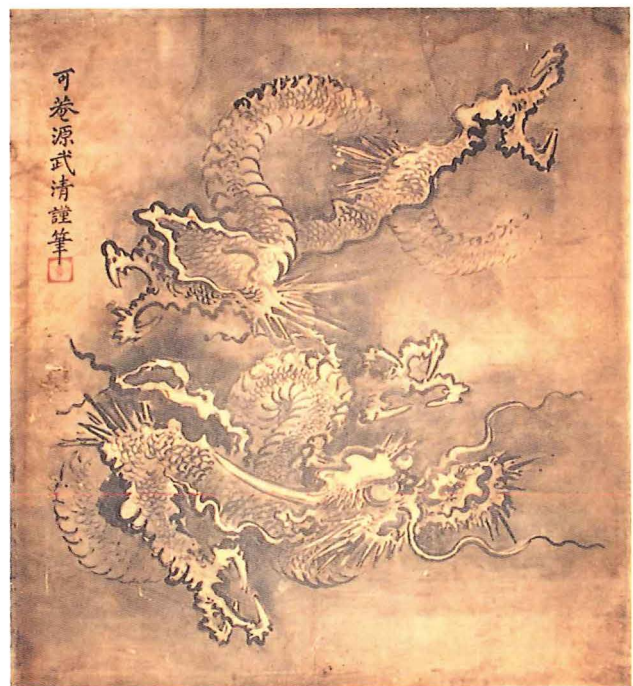 可菴源武清謹筆